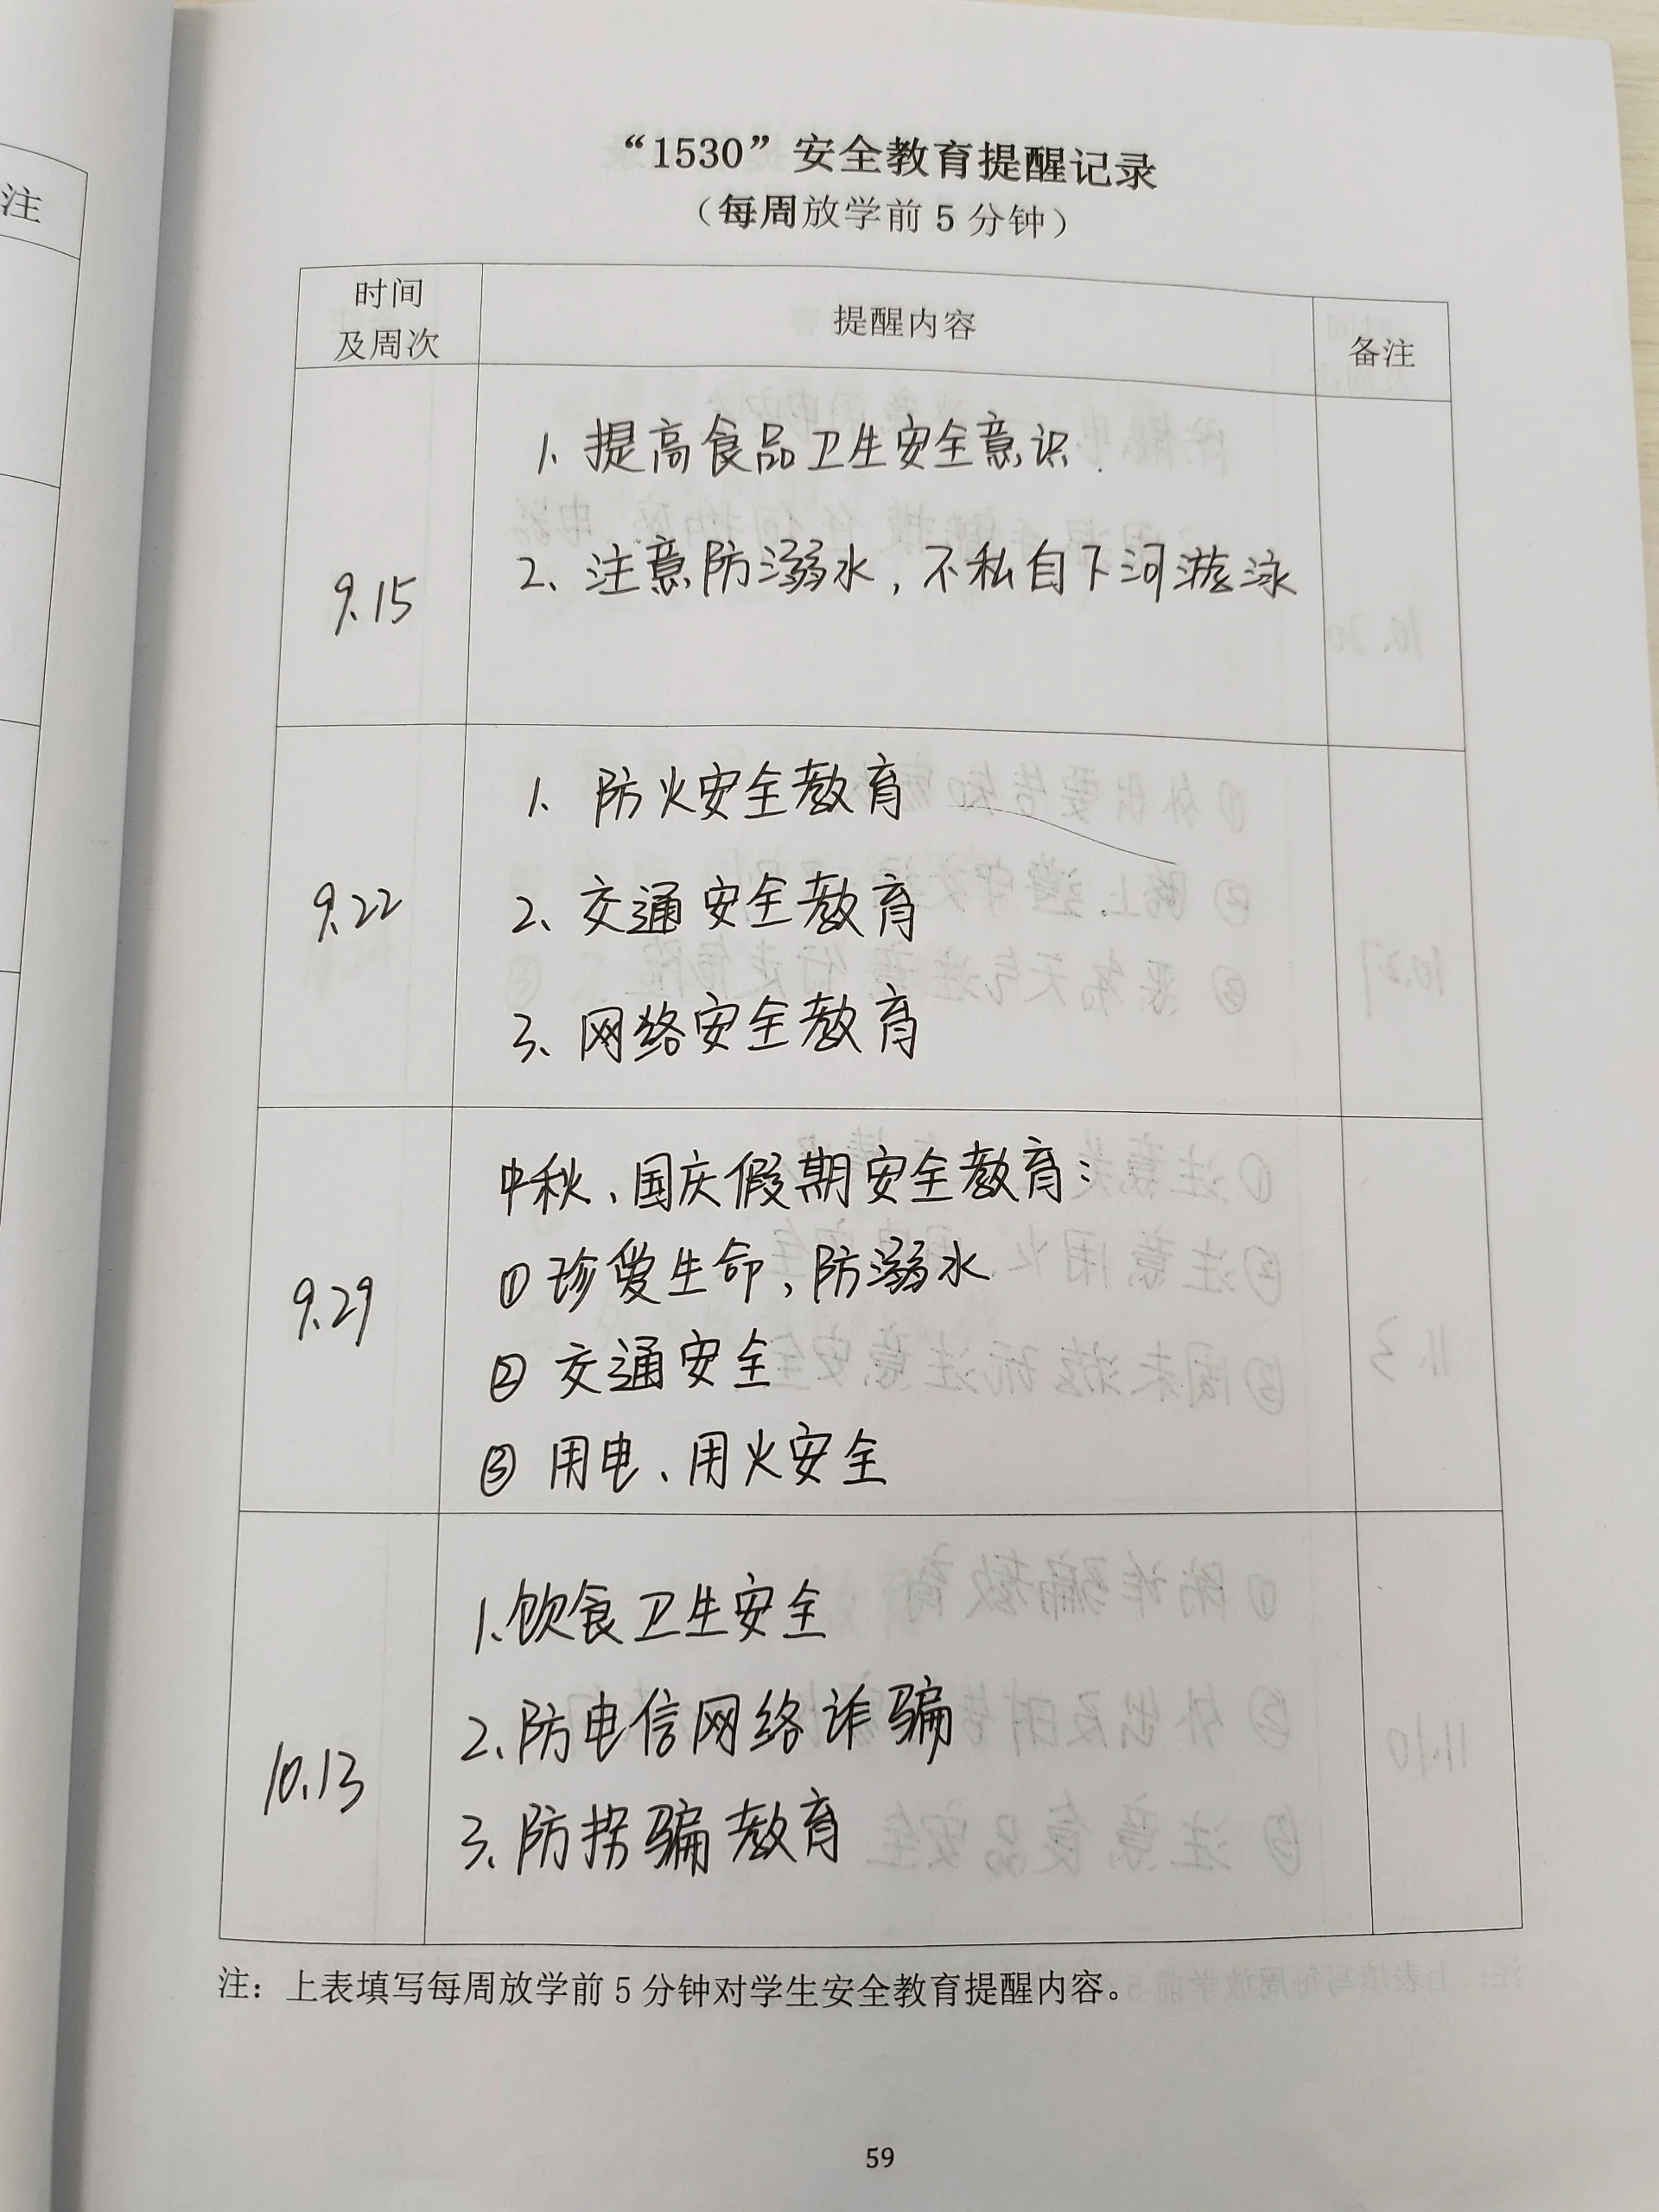 注
“1530”安全教育提醒记录
（每周放学前5分钟）
时间
及周次
提醒内容
备注
9.15
1、提高食品卫生安全意识.
2、注意防溺水，不私自下河游泳
9.22
1、防火安全教育
2、交通安全教育
3、网络安全教育
9.29
中秋、国庆假期安全教育：
①珍爱生命，防溺水
② 交通安全
③ 用电、用火安全
10.13
1、饮食卫生安全
2、防电信网络诈骗
3、防拐骗教育
注：上表填写每周放学前5分钟对学生安全教育提醒内容。
59